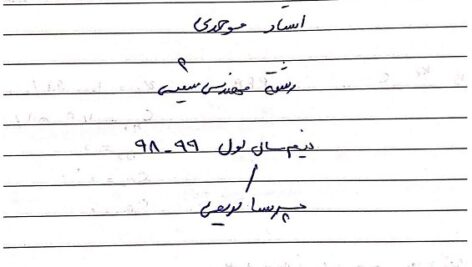 استاد موحدی
رشته مهندسی شیمی
نیم سال اول ۹۹-۹۸
پریسا